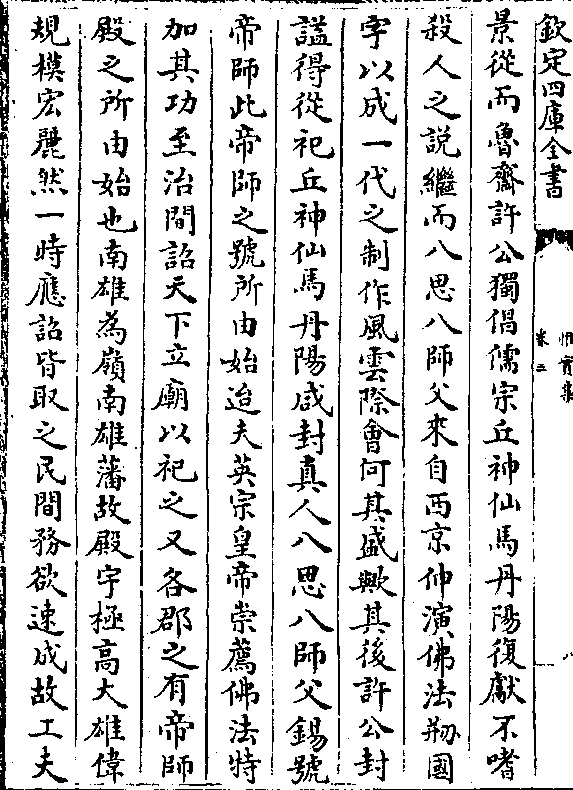 欽定四庫全書
惟實集
卷三
八
景從而魯齋許公獨倡儒宗丘神仙馬丹陽復獻不嗜
殺人之說繼而八思八師父來自西京仲演佛法刱國
字以成一代之制作風雲際會何其盛歟其後許公封
諡得從祀丘神仙馬丹陽咸封真人八思八師父錫號
帝師此帝師之號所由始迨夫英宗皇帝崇薦佛法特
加其功至治間詔天下立廟以祀之又各郡之有帝師
殿之所由始也南雄為嶺南雄藩故殿宇極高大雄偉
規模宏麗然一時應詔皆取之民間務欲速成故工夫